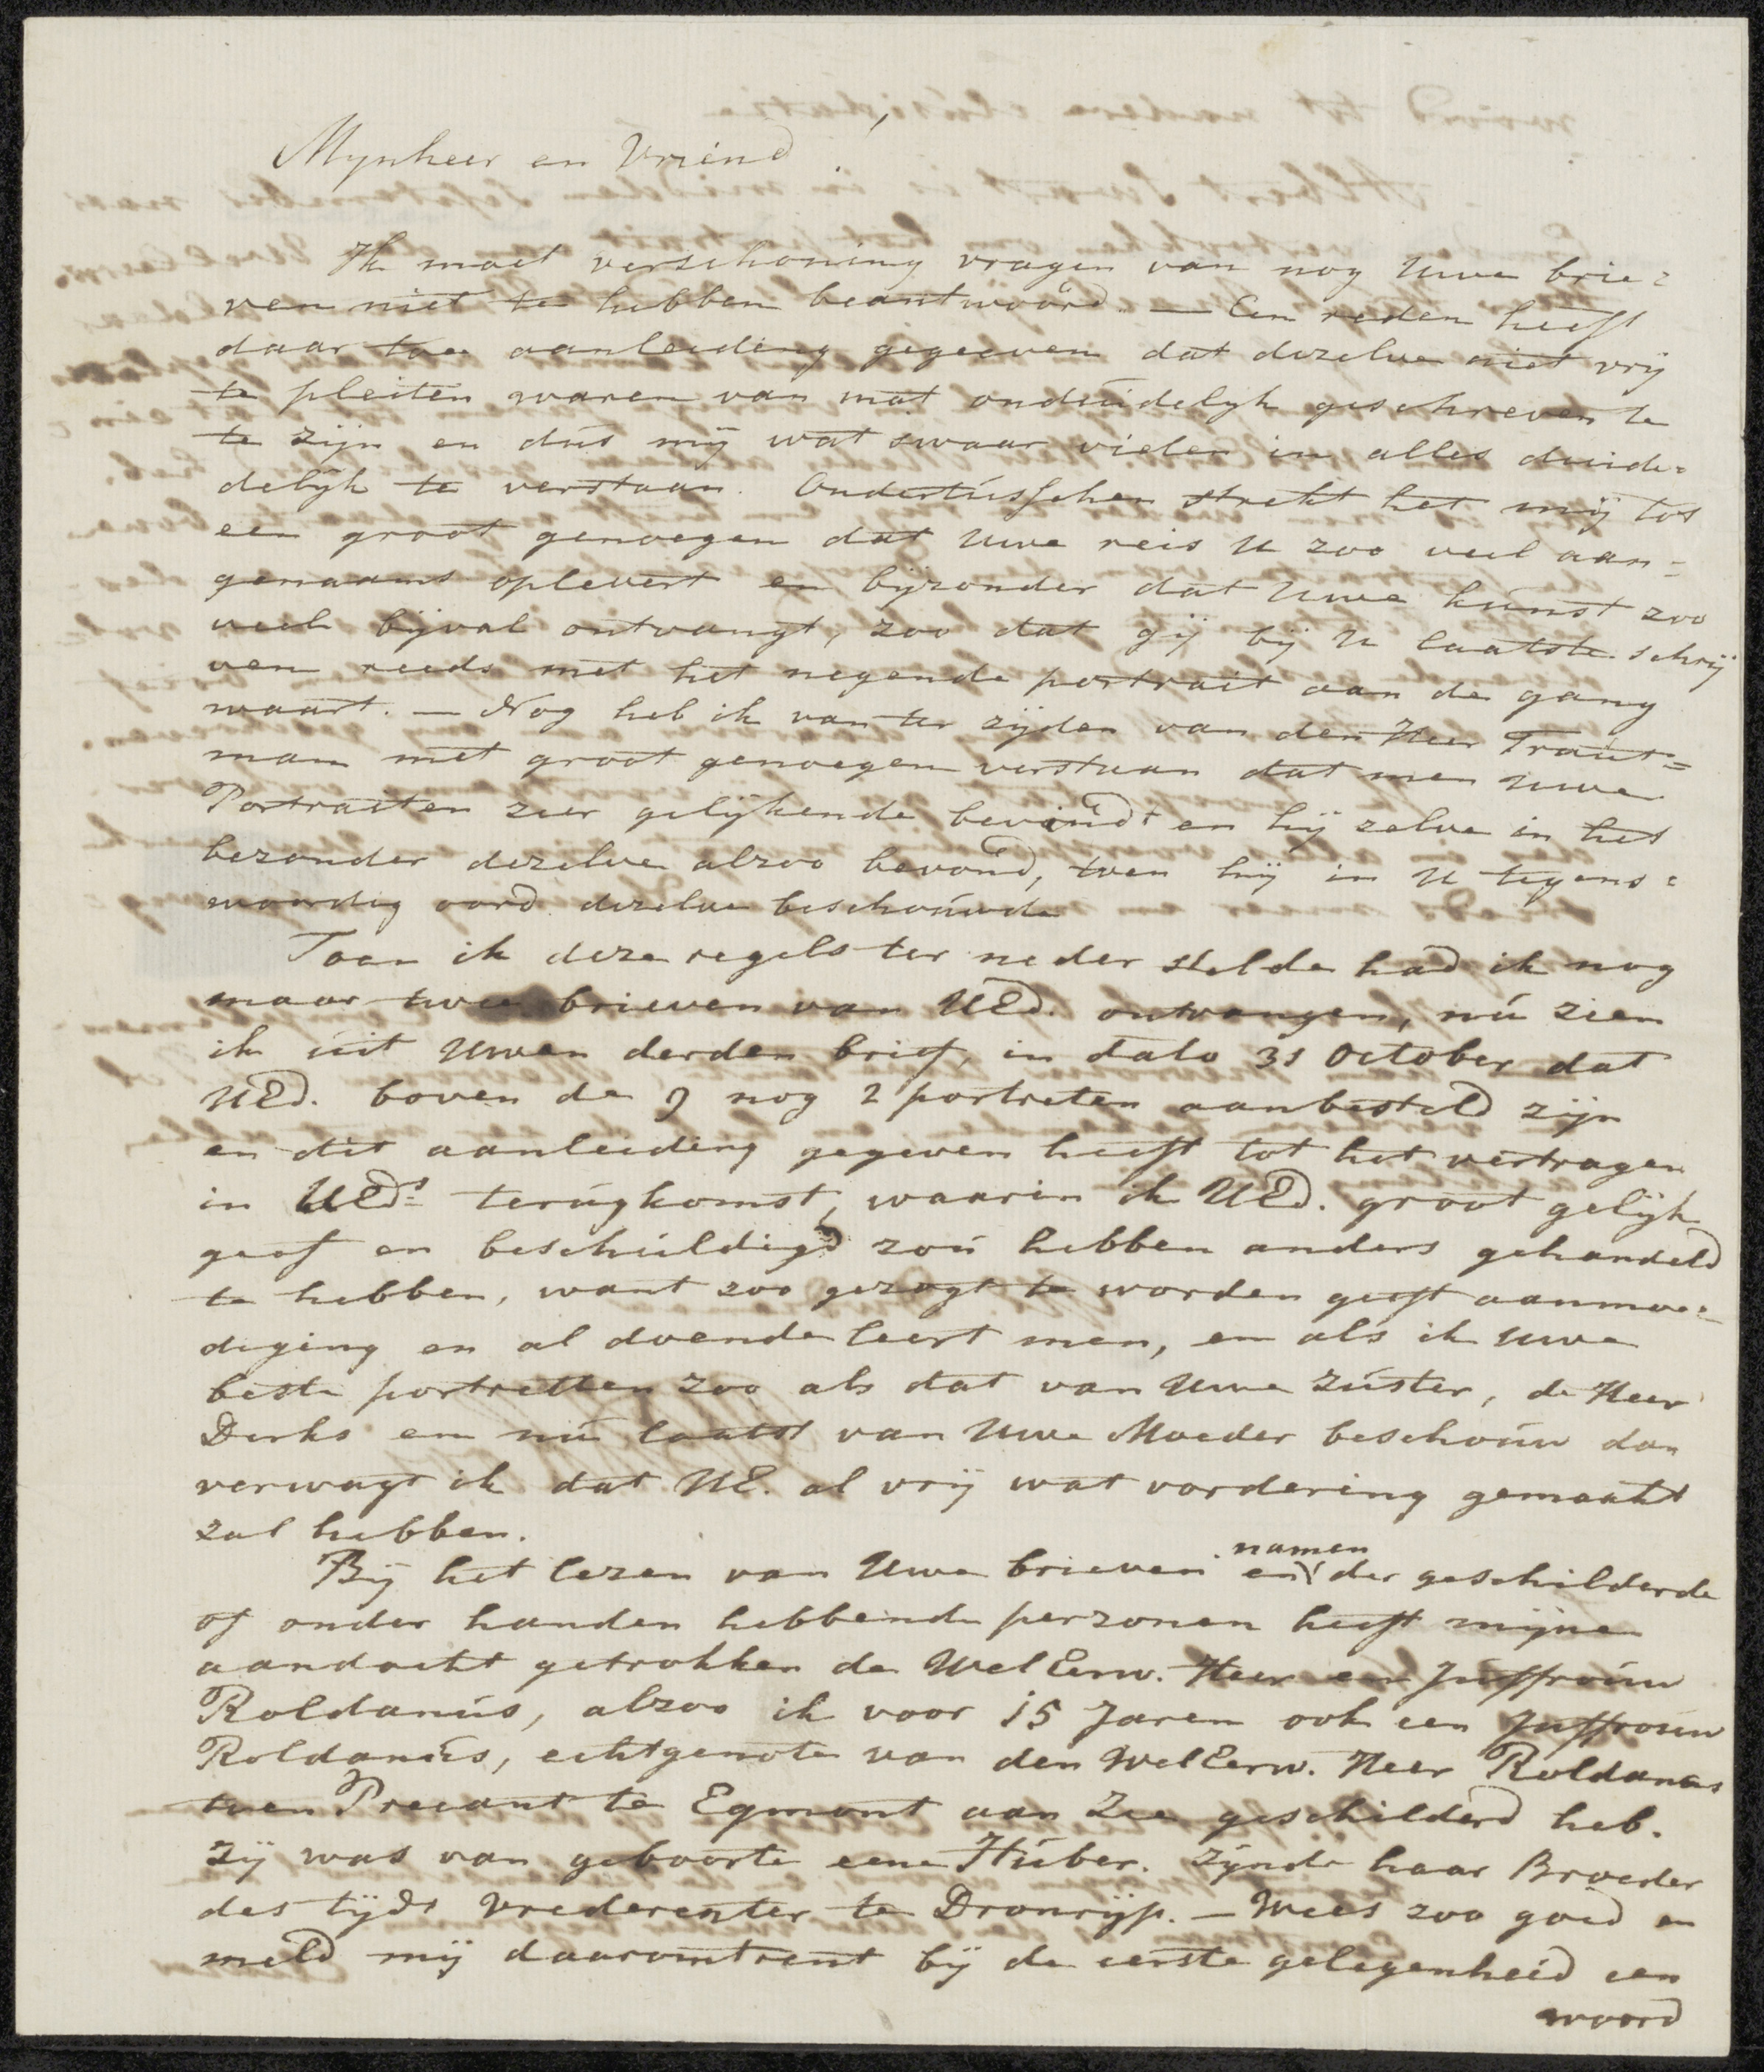 Mynheer en Vriend!
Ik moet verschoning vragen van nog Uwe brie=
ven niet te hebben beantwoord. — Een reden heeft
daar toe aanleiding gegeeven dat dezelve niet vrij
te pleiten waren van wat onduidelyk geschreven te
te zijn en dus mij wat swaar vielen in alles duide=
delijk te verstaan. Ondertusschen strekt het mij tot
een groot genoegen dat Uwe reis U zoo veel aan=
genaams oplevert en bijzonder dat Uwe kunst zoo
veel bijval ontvangt, zoo dat gij bij U laatste schrij
ven reeds met het negende portrait aan de gang
waart. — Nog heb ik van ter zijden van den Heer Traut=
man met groot genoegen verstaan dat men Uwe
Portraiten zeer gelijkende bevindt en hij zelve in het
bezonder dezelve alzoo bevond, toen hij in U tegens=
woordig oord dezelve beschouwde
Toen ik deze regels ter neder stelde had ik nog
maar twee brieven van UEd. ontvangen, nú zien
ik uit Uwen derden brief, in dato 31 October dat
UEd. boven de 9 nog 2 portreten aanbesteld zijn
en dit aanleiding gegeven heeft tot het vertragen
in UEds terugkomst, waarin ik UEd. groot gelijk
geef en beschuldigd zou hebben anders gehandeld
te hebben, want zoo gezogt te worden geeft aanmoe=
diging en al doende leert men, en als ik Uwe
beste portretten zoo als dat van Uwe Zuster, de Heer
Dirks en nu laatst van Uwe Moeder beschouw dan
verwagt ik dat UE. al vrij wat vordering gemaakt
zal hebben.
Bij het lezen van Uwe brieven en namen der geschilderde
of onder handen hebbende perzonen heeft mijne
aandacht getrokken de WelEerw. Heer en Juffrouw
Roldanus, alzoo ik voor 15 Jaren ook een Juffrouw
Roldanus, echtgenote van den WelEerw. Heer Roldanus
toen Precant te Egmont aan Zee geschilderd heb.
Zij was van geboorte eene Huber. Zijnde haar Broeder
des tijds Vrederegter te Dronrijp. — Wees zoo goed en
meld mij daaromtrent bij de eerste gelegenheid een
woord